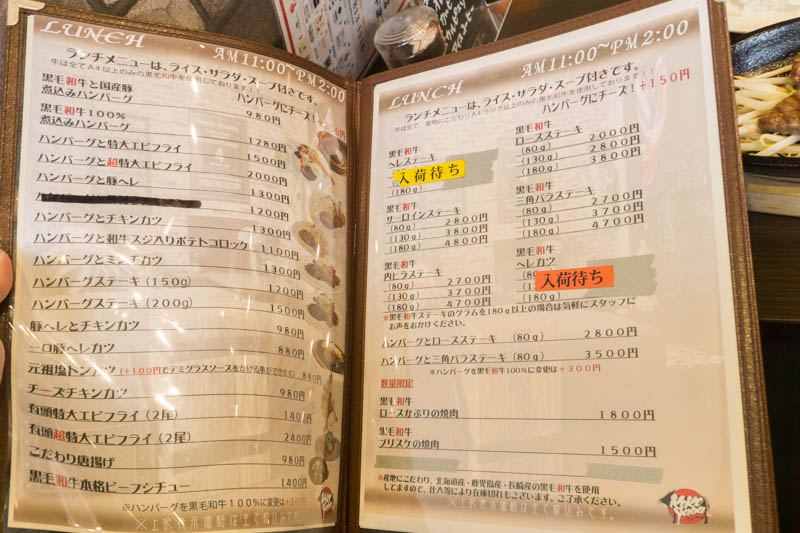 LUNCH AM11:00~PM2:00
ランチメニューは、ライス・サラダ・スープ付きです。
牛は全てA4以上のみの黒毛和牛を使用しております!!
ハンバーグにチーズ!
黒毛和牛と国産豚
煮込みハンバーグ 980円
黒毛和牛100%
煮込みハンバーグ 1280円
ハンバーグと特大エビフライ 1500円
ハンバーグと超特大エビフライ 2000円
ハンバーグと豚ヘレ 1300円
1200円
ハンバーグとチキンカツ 1300円
ハンバーグと和牛スジ入りポテトコロッケ 1100円
ハンバーグとミンチカツ 1300円
ハンバーグステーキ (150g) 1200円
ハンバーグステーキ (200g) 1500円
豚ヘレとチキンカツ 980円
一口豚ヘレカツ 880円
元祖塩トンカツ (+100円でデミグラスソースをかける事ができます) 880円
チーズチキンカツ 980円
有頭特大エビフライ (2尾) 1400円
有頭超特大エビフライ (2尾) 2400円
こだわり唐揚げ 980円
黒毛和牛本格ビーフシチュー 1400円
※ハンバーグを黒毛和牛100%に変更は+300円
※上記表示価格は全て税込みです。
LUNCH AM11:00~PM2:00
ランチメニューは、ライス・サラダ・スープ付きです。
牛は全て、産地にこだわりA4ランク以上のみの黒毛和牛を使用しております!!
ハンバーグにチーズ!+150円
黒毛和牛
ヘレステーキ
入荷待ち
(180g)
黒毛和牛
サーロインステーキ
(80g) 2800円
(130g) 3800円
(180g) 4800円
黒毛和牛
内ヒラステーキ
(80g) 2700円
(130g) 3700円
(180g) 4700円
黒毛和牛
ロースステーキ
(80g) 2000円
(130g) 2800円
(180g) 3800円
黒毛和牛
三角バラステーキ
(80g) 2700円
(130g) 3700円
(180g) 4700円
黒毛和牛
ヘレカツ
(80
入荷待ち
(180g)
※黒毛和牛ステーキのグラムを180g以上の場合は気軽にスタッフに
お声をおかけください。
ハンバーグとロースステーキ (80g) 2800円
ハンバーグと三角バラステーキ (80g) 3500円
※ハンバーグを黒毛和牛100%に変更は+300円
数量限定
黒毛和牛
ロースかぶりの焼肉 1800円
黒毛和牛
ブリスケの焼肉 1500円
※産地にこだわり、北海道産・鹿児島産・長崎産の黒毛和牛を使用
してますので、仕入等により在庫切れもございます。ご了承ください。
※上記表示価格は全て税込みです。